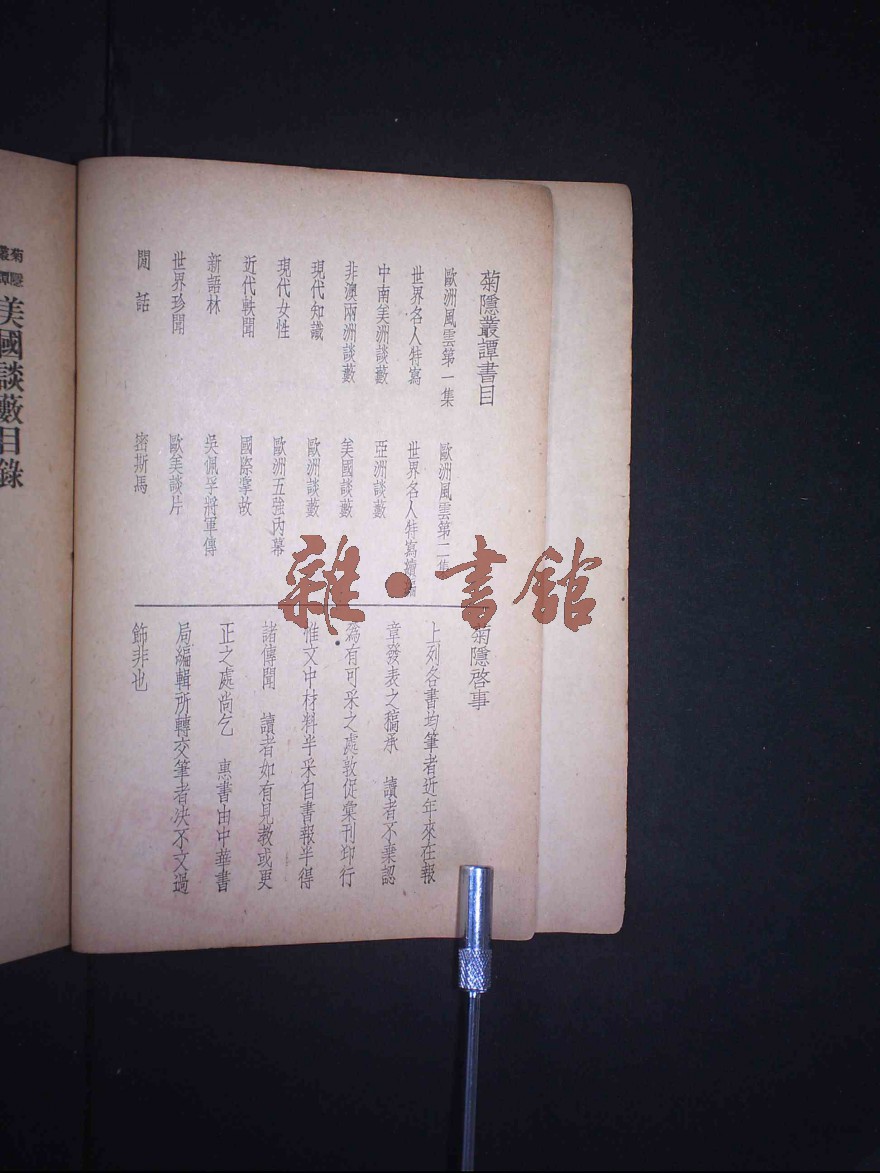 菊隱叢譚書目
歐洲風雲第一集
歐洲風雲第二集
世界名人特寫
世界名人特寫續編
中南美洲談藪
亞洲談藪
非澳兩洲談藪
美國談藪
現代知識
歐洲談藪
現代女性
歐洲五強內幕
近代軼聞
國際掌故
新語林
吳佩孚將軍傳
世界珍聞
歐美談片
閒話
密斯馬
菊隱啓事
上列各書均筆者近年來在報
章發表之稿承 讀者不棄認
為有可采之處敦促彙刊印行
惟文中材料半采自書報半得
諸傳聞 讀者如有見教或更
正之處尚乞 惠書由中華書
局編輯所轉交筆者決不文過
飾非也
菊隱叢譚
美國談藪目錄
雜·書館